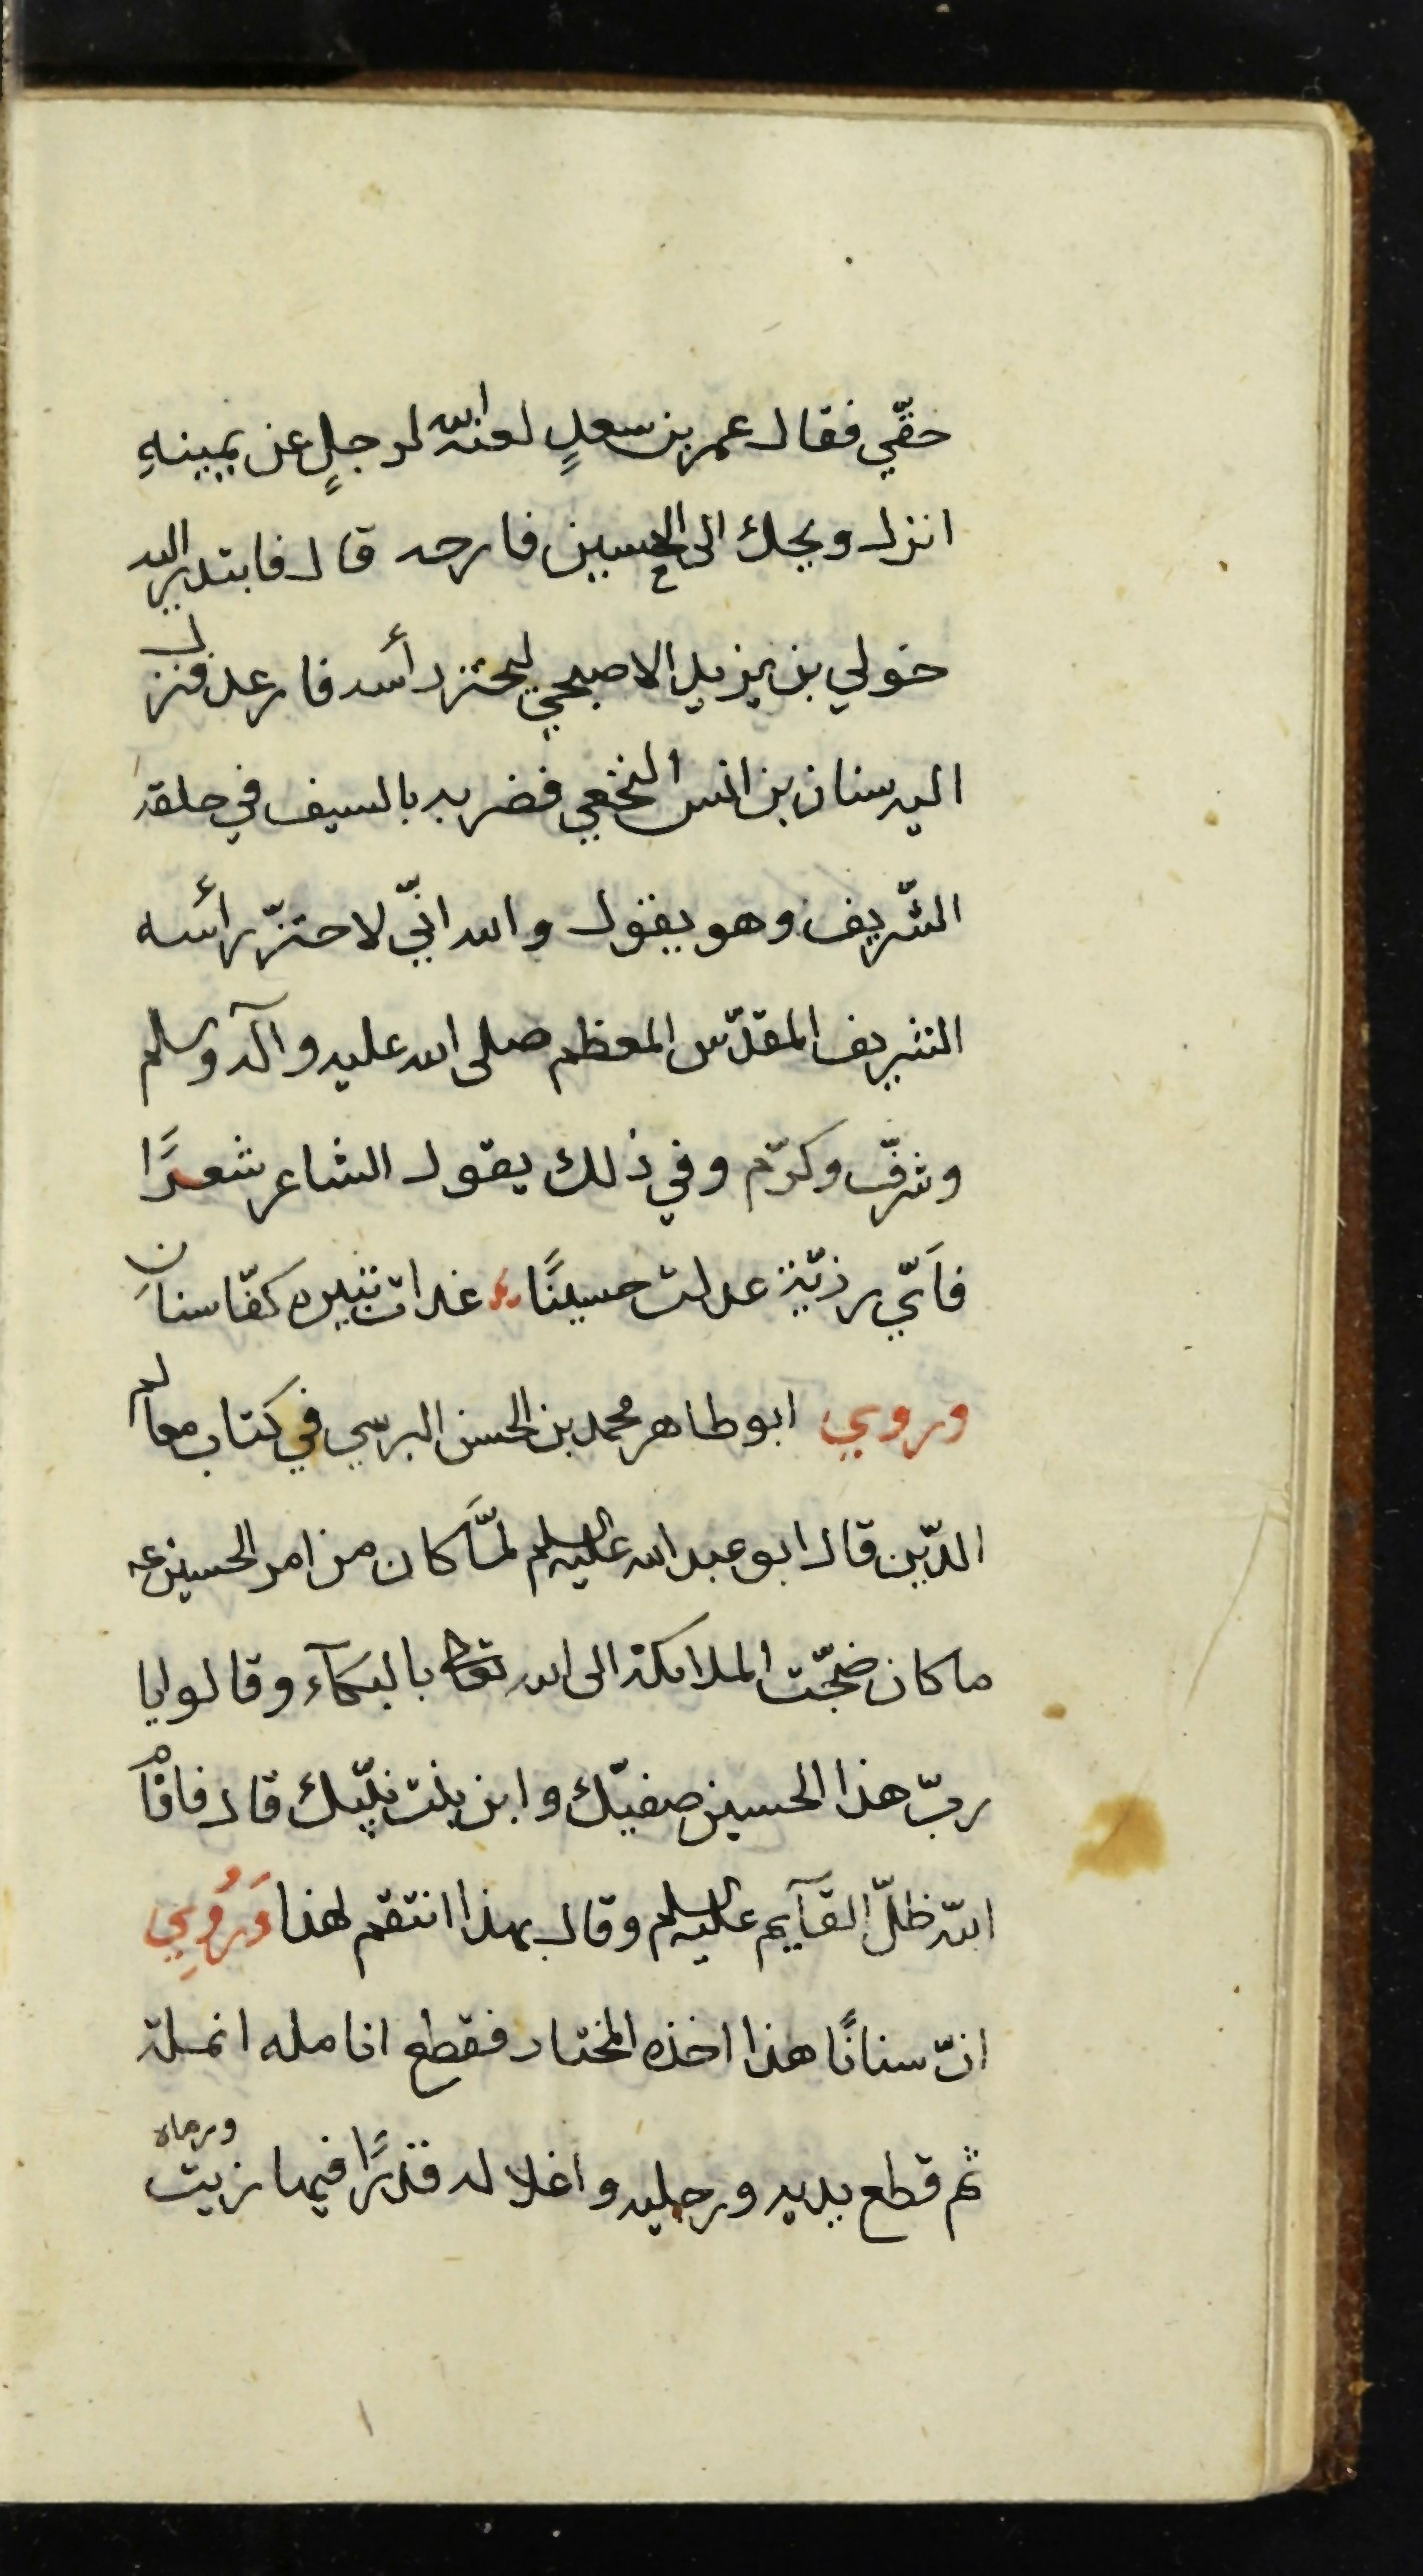 حقّي فقال عمر بن سعدٍ لعنه الله لرجلٍ عن يمينهِ
انزل ويحك الى الحسين ع فارحه قال فابتدر اليه
خولي بن يزيد الاصبحي ليحتز رأسه فارعد فنزل
اليه سنان بن انس النخعي فضربه بالسيف في حلقه
الشّريف وهو يقول والله انّي لاحتزّ رأسه
الشريف المقدّس المعظم صلى الله عليه وآله وسلم
وشرّف وكرّم وفي ذلك يقول الشاعر شعرًا
فاَيّ رذيّة عدلت حسينًا غدات تبيره كفّا سنانِ
وروي ابو طاهر محمد بن الحسن البرسي في كتاب معالم
الدّين قال ابو عبد الله عليه السلم لمّا كان من امر الحسين عه
ما كان ضجّت الملائكة الى الله تعالى بالبكآء وقالوا يا
ربّ هذا الحسين صفيّك وابن بنت نبيّك قال فاقام
الله ظلّ القآيم عليه السلم وقال بهذا انتقم لهذا وَرُوِي
انّ سنانًا هذا اخذه المختار فقطع انامله انملة
ثم قطع يديه ورجليه واغلا له قدرًا فيها زيت ورماه